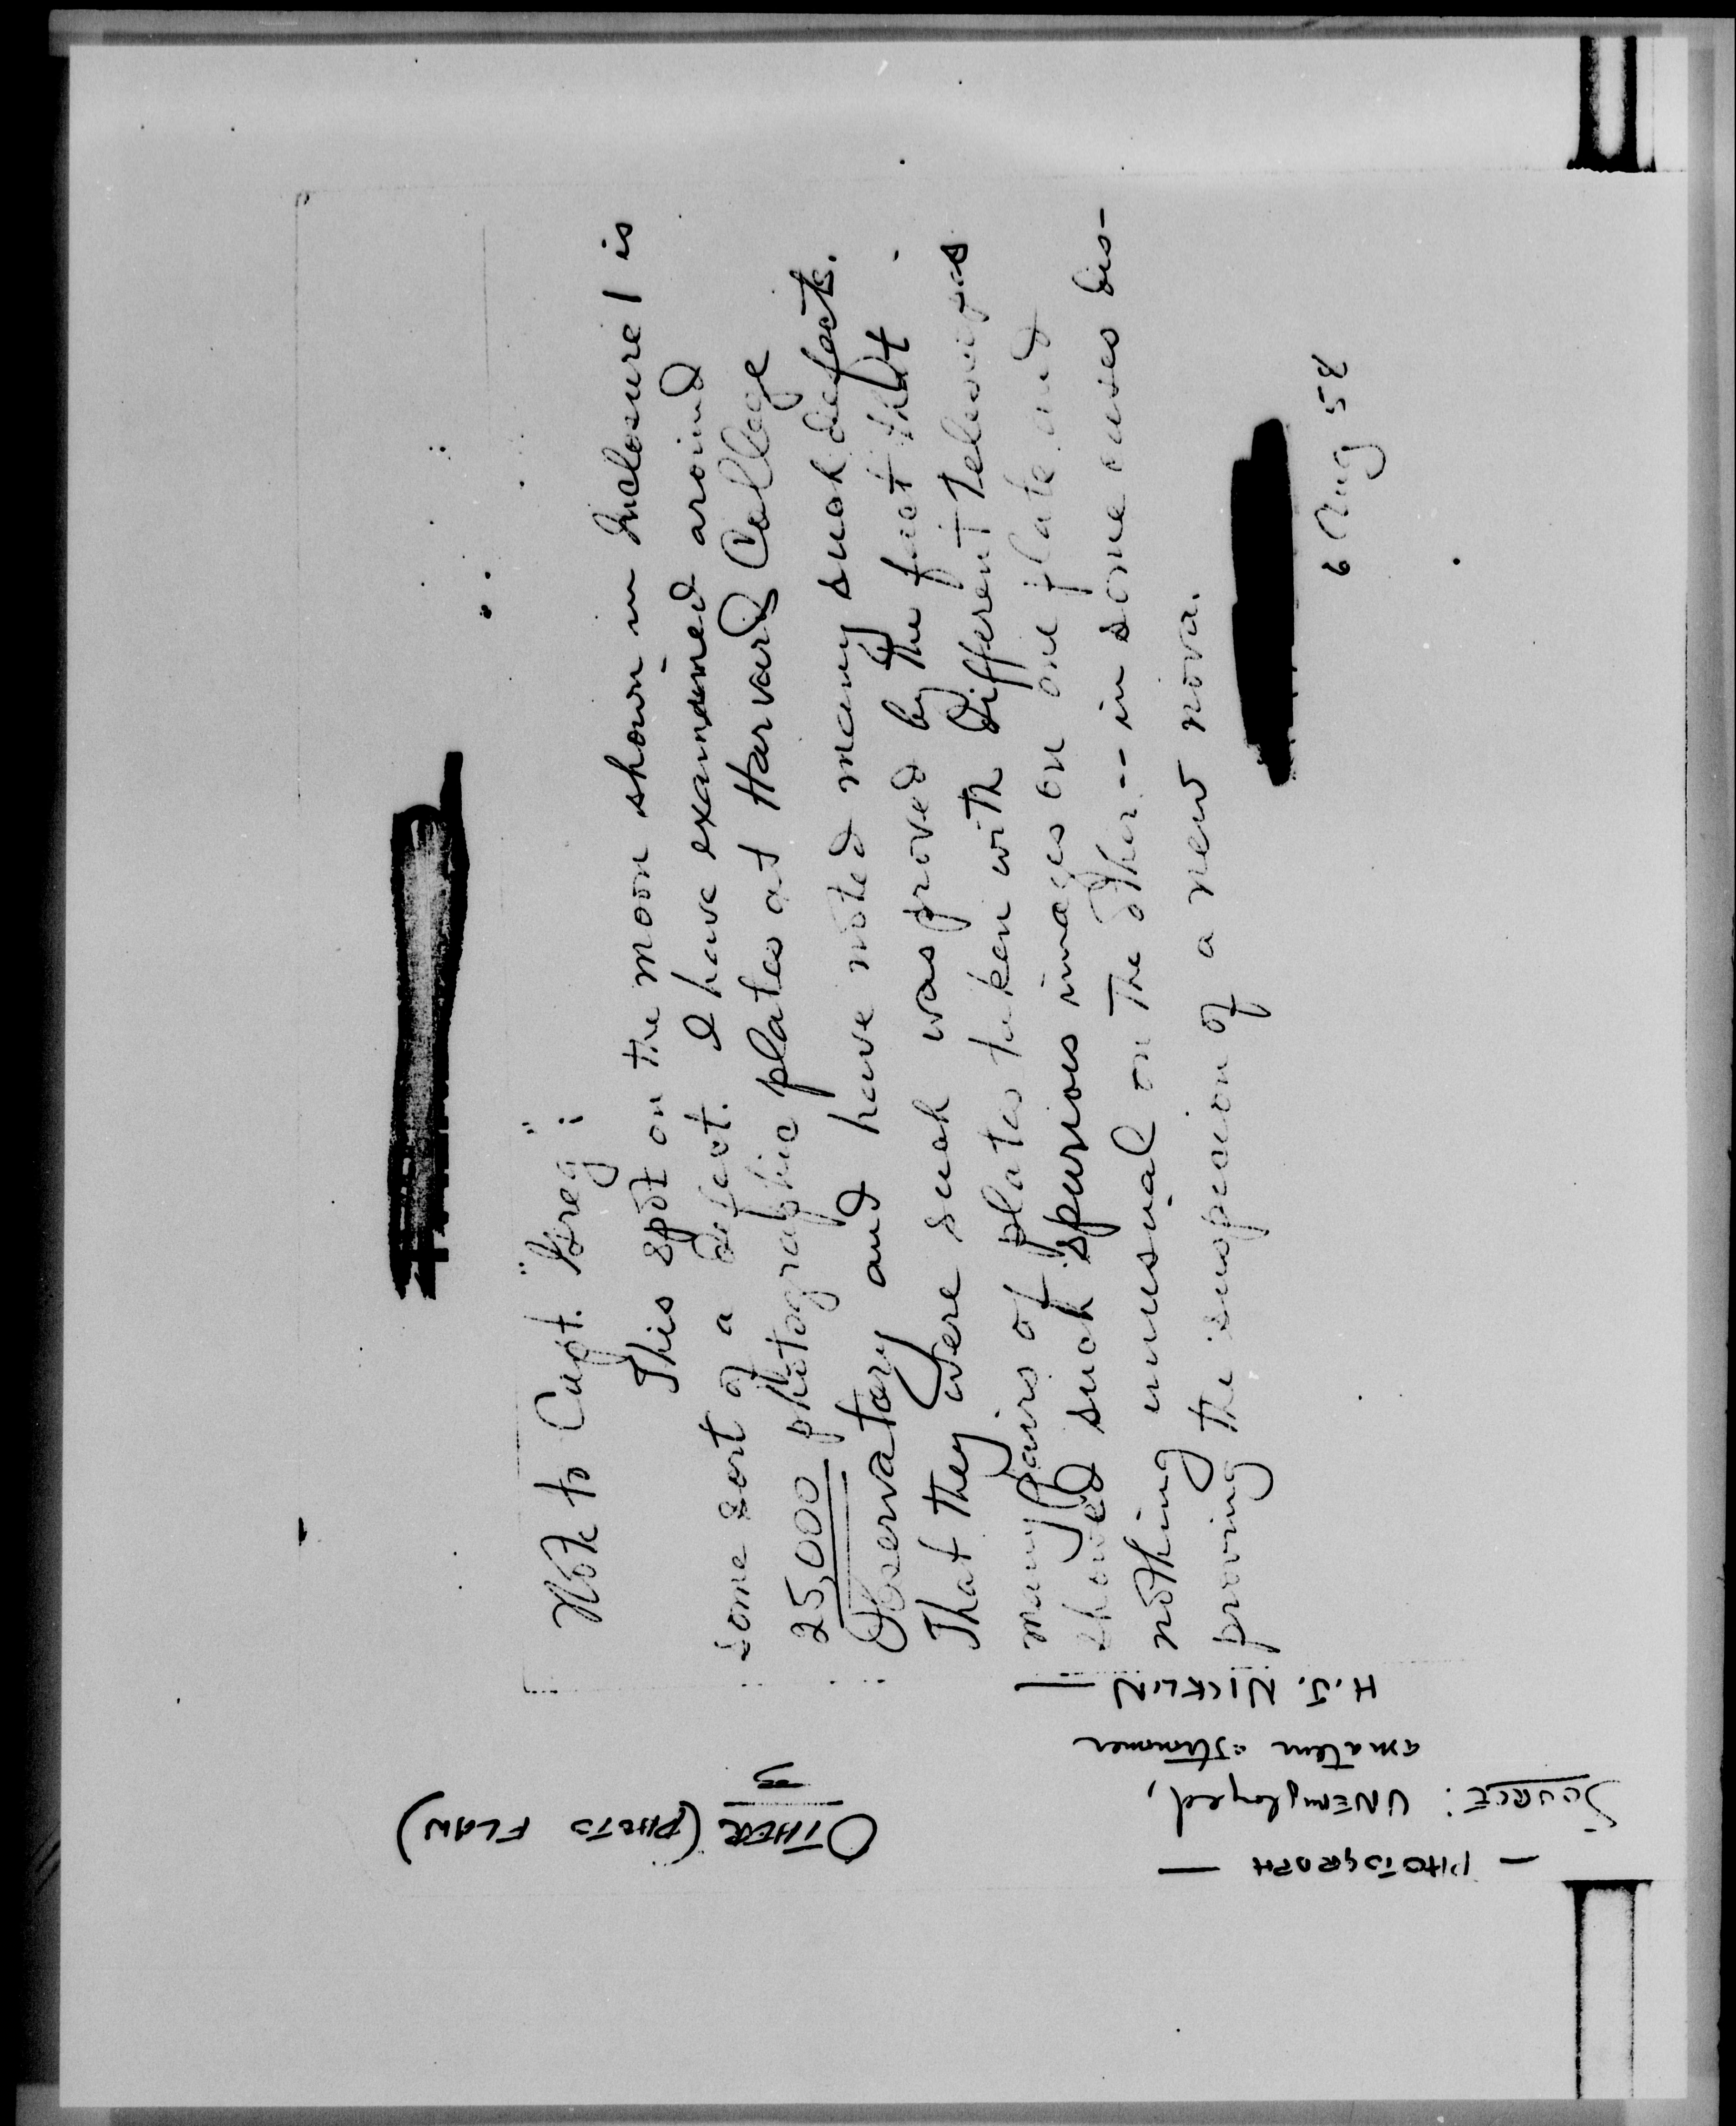 Note to Capt. "Greg":
This spot on the moon shown in Inclosure 1 is
some sort of a defect. I have examined around
25,000 photographic plates at Harvard College
Observatory and have noted many such defects.
That they were such was proved by the fact that
many pairs of plates taken with different telescopes
showed such spurious images on one plate and
nothing unusual on the other -- in some cases dis-
proving the suspicion of a new nova.
6 Aug 58
— PHOTOGRAPH —
SOURCE: UNEmployed,
amateur astronomer
OTHER (PHOTO FLAW)